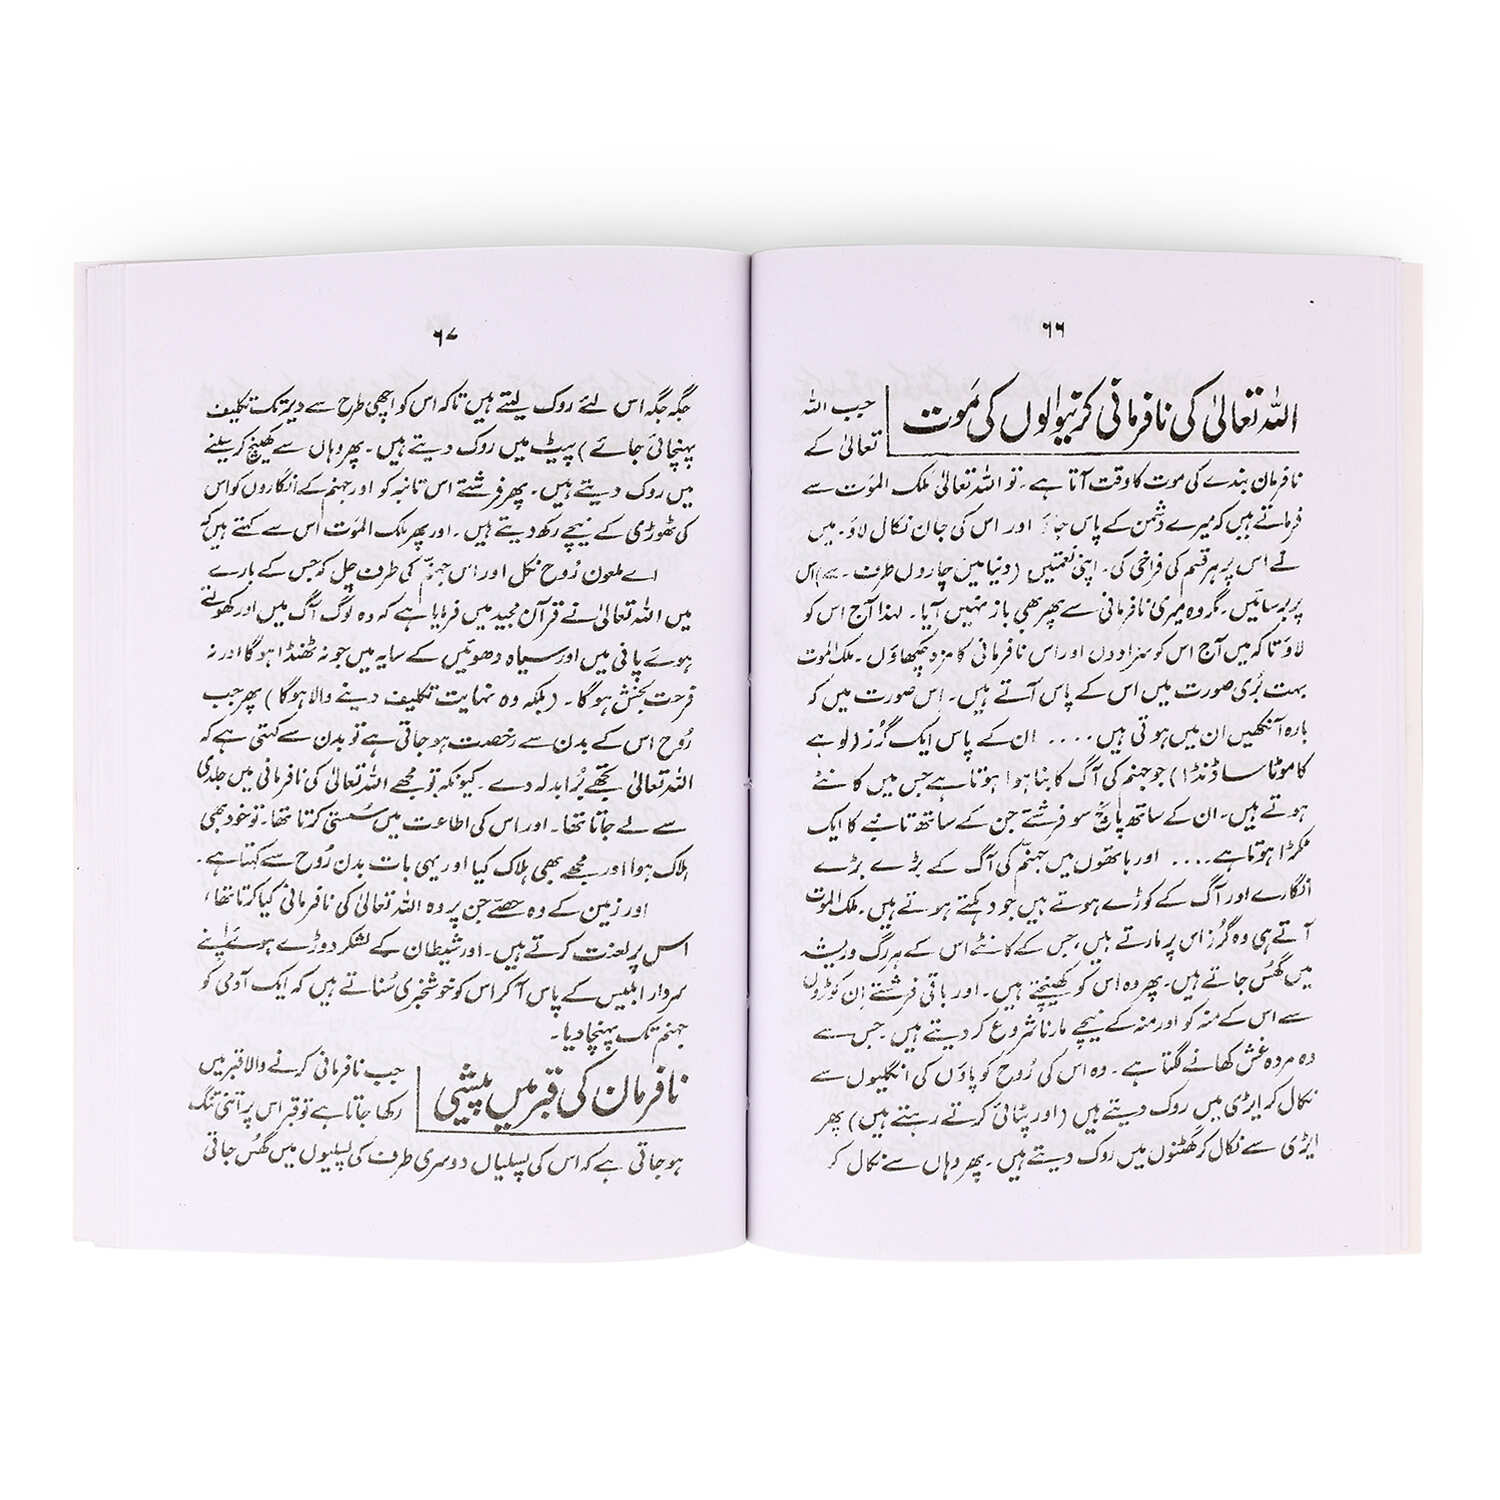 ۶۶
اللہ تعالیٰ کی نافرمانی کرنیوالوں کی مَوت
جب اللہ
تعالیٰ کے
نافرمان بندے کی موت کا وقت آتا ہے۔ تو اللہ تعالیٰ ملک المَوت سے
فرماتے ہیں کہ میرے دشمن کے پاس جاؤ اور اس کی جان نکال لاؤ۔ میں
نے اس پر ہر قسم کی فراخی کی۔ اپنی نعمتیں (دنیا میں چاروں طرف۔ سے) اس
پر برسائیں۔ مگر وہ میری نافرمانی سے پھر بھی باز نہیں آیا۔ لہٰذا آج اس کو
لاؤ تاکہ میں آج اس کو سزا دوں اور اس نافرمانی کا مزہ چکھاؤں۔ ملک الموت
بہت بُری صورت میں اس کے پاس آتے ہیں۔ اس صورت میں کہ
بارہ آنکھیں ان میں ہوتی ہیں .... ان کے پاس ایک گُرز (لوہے
کا موٹا سا ڈنڈا) جو جہنم کی آگ کا بنا ہوا ہوتا ہے جس میں کانٹے
ہوتے ہیں۔ ان کے ساتھ پانچ سو فرشتے جن کے ساتھ تانبے کا ایک
ٹکڑا ہوتا ہے .... اور ہاتھوں میں جہنم کی آگ کے بڑے بڑے
انگارے اور آگ کے کوڑے ہوتے ہیں جو دہکتے ہوتے ہیں۔ ملک الموت
آتے ہی وہ گُرز اس پر مارتے ہیں، جس کے کانٹے اس کے ہر رگ و ریشہ
میں گھُس جاتے ہیں۔ پھر وہ اس کو کھینچتے ہیں۔ اور باقی فرشتے اِن کوڑوں
سے اس کے منہ کو اور منہ کے نیچے مارنا شروع کر دیتے ہیں۔ جس سے
وہ مردہ غش کھانے لگتا ہے۔ وہ اس کی رُوح کو پاؤں کی انگلیوں سے
نکال کر ایڑی میں روک دیتے ہیں (اور پٹائی کرتے رہتے ہیں) پھر
ایڑی سے نکال کر گھٹنوں میں روک دیتے ہیں۔ پھر وہاں سے نکال کر
۶۷
جگہ جگہ اس لئے روک لیتے ہیں تاکہ اس کو اچھی طرح سے دیر تک تکلیف
پہنچائی جائے) پیٹ میں روک دیتے ہیں۔ پھر وہاں سے کھینچ کر سینے
میں روک دیتے ہیں۔ پھر فرشتے اس تانبہ کو اور جہنم کے انگاروں کو اس
کی ٹھوڑی کے نیچے رکھ دیتے ہیں۔ اور پھر ملک المَوت اس سے کہتے ہیں کہ
اے ملعون رُوح نکل اور اس جہنم کی طرف چل کہ جس کے بارے
میں اللہ تعالیٰ نے قرآن مجید میں فرمایا ہے کہ وہ لوگ آگ میں اور کھولتے
ہوئے پانی میں اور سیاہ دھوئیں کے سایہ میں جو نہ ٹھنڈا ہوگا اور نہ
فرحت بخش ہوگا۔ (بلکہ وہ نہایت تکلیف دینے والا ہوگا) پھر جب
رُوح اس کے بدن سے رخصت ہو جاتی ہے تو بدن سے کہتی ہے کہ
اللہ تعالیٰ تجھے بُرا بدلہ دے۔ کیونکہ تو مجھے اللہ تعالیٰ کی نافرمانی میں جلدی
سے لے جاتا تھا۔ اور اس کی اطاعت میں سُستی کرتا تھا۔ تو خود بھی
ہلاک ہوا اور مجھے بھی ہلاک کیا اور یہی بات بدن رُوح سے کہتا ہے۔
اور زمین کے وہ حصے جن پر وہ اللہ تعالیٰ کی نافرمانی کیا کرتا تھا،
اس پر لعنت کرتے ہیں۔ اور شیطان کے لشکر دوڑے ہوئے اپنے
سردار ابلیس کے پاس آکر اس کو خوشخبری سُناتے ہیں کہ ایک آدمی کو
جہنم تک پہنچا دیا۔
نافرمان کی قبر میں پیشی
جب نافرمانی کرنے والا قبر میں
رکھا جاتا ہے تو قبر اس پر اتنی تنگ
ہو جاتی ہے کہ اس کی پسلیاں دوسری طرف کی پسلیوں میں گھُس جاتی